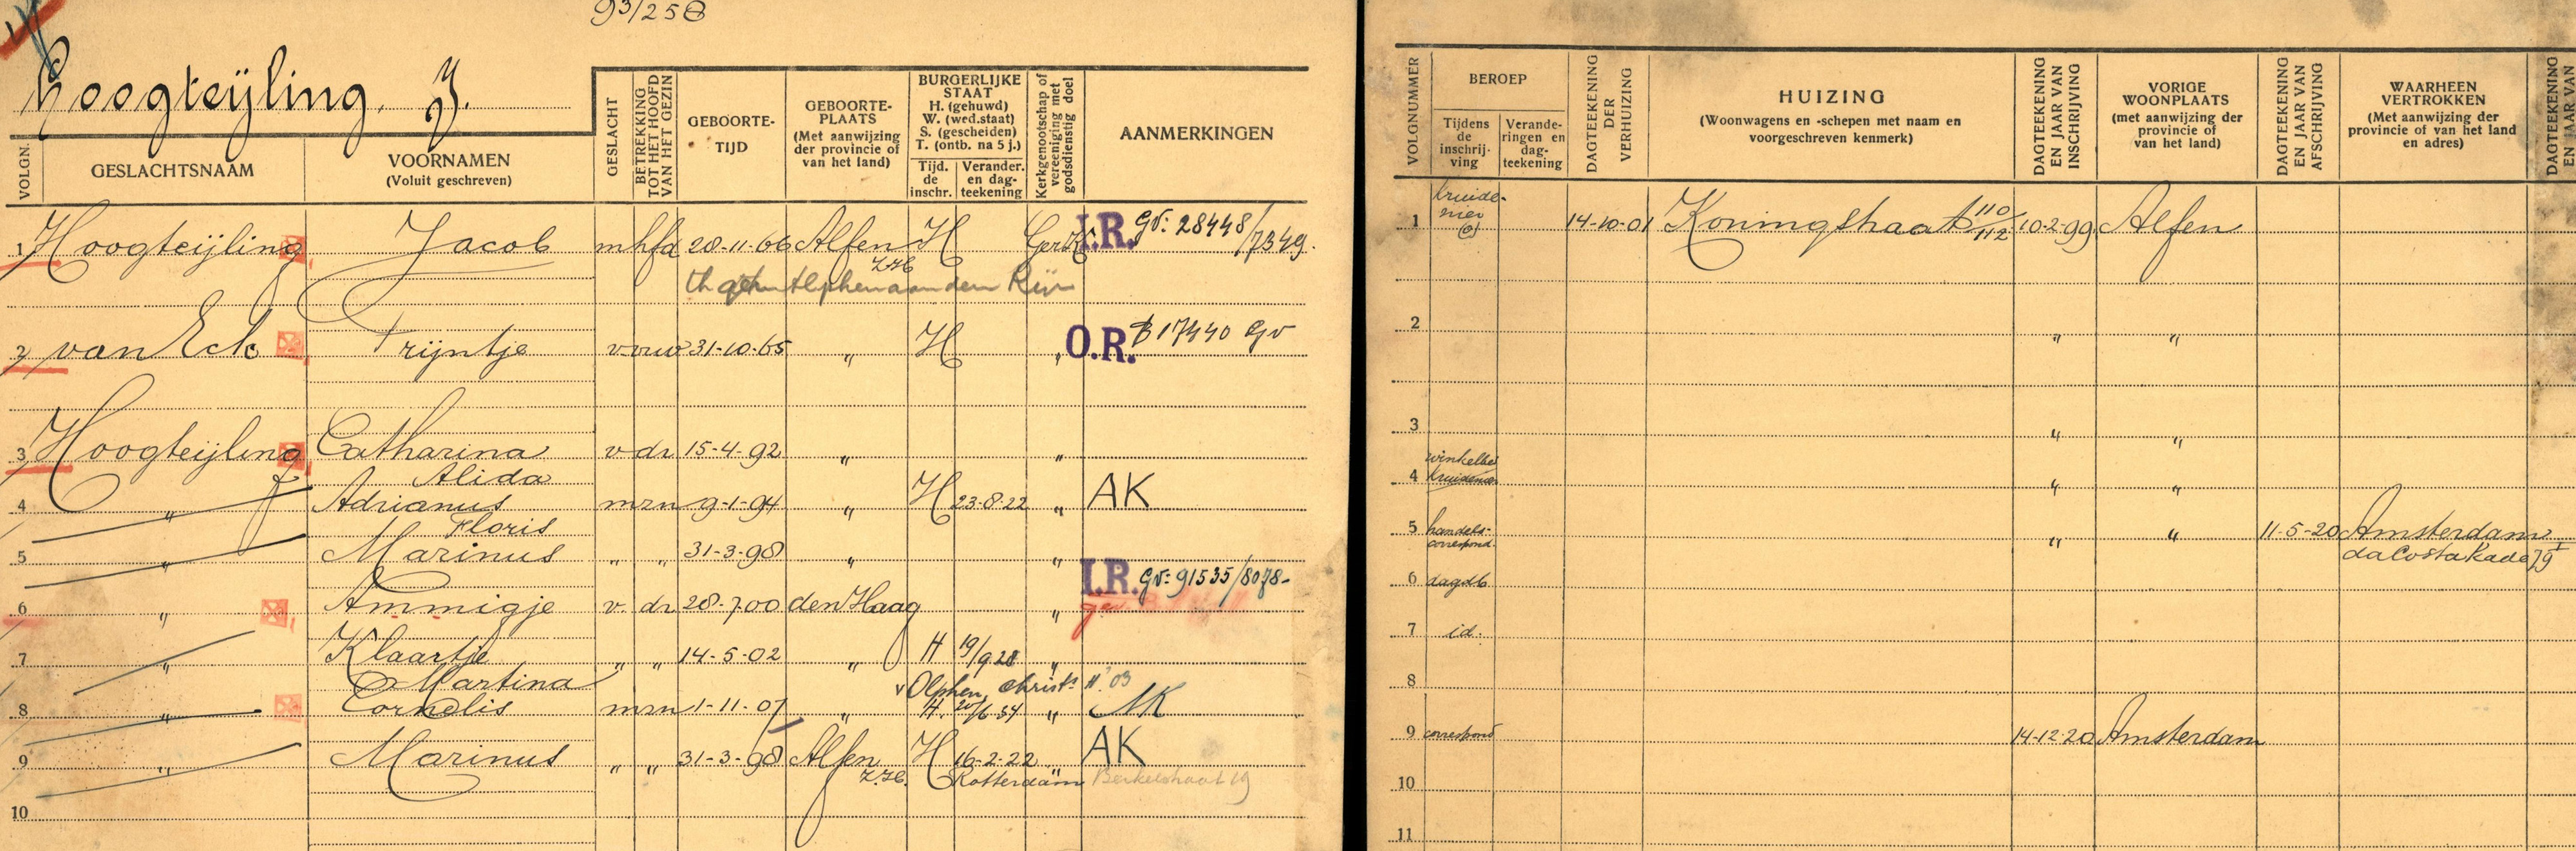 93/258
Hoogteijling. J.
VOLGN.
GESLACHTSNAAM
VOORNAMEN
(Voluit geschreven)
GESLACHT
BETREKKING
TOT HET HOOFD
VAN HET GEZIN
GEBOORTE-
TIJD
GEBOORTE-
PLAATS
(Met aanwijzing
der provincie of
van het land)
BURGERLIJKE
STAAT
H. (gehuwd)
W. (wed.staat)
S. (gescheiden)
T. (ontb. na 5 j.)
Tijd.
de
inschr.
Verander.
en dag-
teekening
Kerkgenootschap of
vereeniging met
godsdienstig doel
AANMERKINGEN
1 Hoogteijling Jacob m hfd 28-11-66 Alfen H Ger.K I.R. Gv: 28448/7349.
Z.H.
Alphen aan den Rijn
2 van Eck Trijntje v vrw 31-10-65 " H " O.R. B 17440 Gv
3 Hoogteijling Catharina v dr 15-4-92 " "
Alida
4 " Adrianus m zn 9-1-94 " H 23-8-22 " AK
Floris
5 " Marinus " " 31-3-98 " "
I.R. Gv: 91535/8078-
6 " Ammigje v. dr 28-7-00 den Haag "
7 " Klaartje " " 14-5-02 " H 19/9 28 "
Martina v Olphen, Christn 11.'03
8 " Cornelis m zn 1-11-07 " H. 20/6 34 " AK
9 " Marinus " " 31-3-98 Alfen H 16-2-22 " AK
Z.H. Rotterdam Berkelstraat 19
10
VOLGNUMMER
BEROEP
Tijdens
de
inschrij-
ving
Verande-
ringen en
dag-
teekening
DAGTEEKENING
DER
VERHUIZING
HUIZING
(Woonwagens en -schepen met naam en
voorgeschreven kenmerk)
DAGTEEKENING
EN JAAR VAN
INSCHRIJVING
VORIGE
WOONPLAATS
(met aanwijzing der
provincie of
van het land)
DAGTEEKENING
EN JAAR VAN
AFSCHRIJVING
WAARHEEN
VERTROKKEN
(Met aanwijzing der
provincie of van het land
en adres)
DAGTEEKENING
EN JAAR VAN
1 kruide-
nier 14-10-01 Koningstraat 110/112 10-2-99 Alfen
2 " "
3 " "
winkelbed
4 kruidenier " "
5 handels- " " 11-5-20 Amsterdam
correspond. da Costakade 79 I
6 dagdb
7 id.
8
9 correspond 14-12-20 Amsterdam
10
11